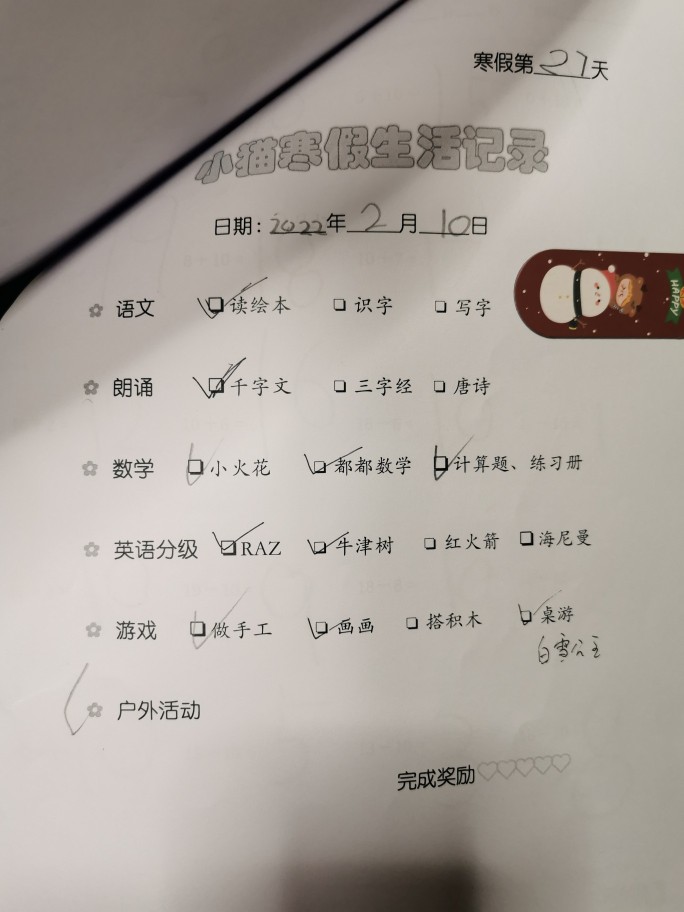 寒假第27天
小猫寒假生活记录
日期：2022年2月10日
HAPPY
语文 读绘本 识字 写字
朗诵 千字文 三字经 唐诗
数学 小火花 都都数学 计算题、练习册
英语分级 RAZ 牛津树 红火箭 海尼曼
游戏 做手工 画画 搭积木 桌游
白雪公主
户外活动
完成奖励